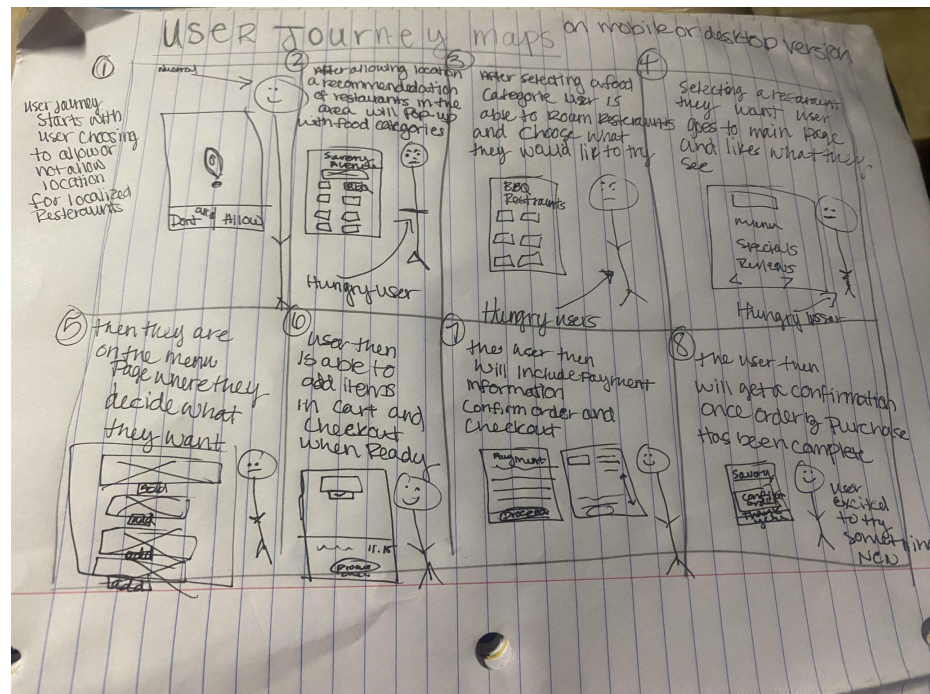 User Journey maps on mobile or desktop version
①
User journey
Starts with
user choosing
to allow or
not allow
location
for localized
Resteraunts
Neutral
Dont
Allow
②
After allowing location
a recommendedation
of restaurants in the
area will Pop up
with food categories
Savory
Avenue
BBQ
Hungry user
③
After selecting a food
Categorie user is
able to Roam Resteraunts
and Choose what
they would like to try
BBQ
Restraunts
Hungry users
④
Selecting a restaraunt
they want user
goes to main page
and likes what they
see
menu
Specials
Reviews
Hungry user
⑤
then they are
on the menu
Page where they
decide what
they want
Add
add
add
add
⑥
User then
is able to
add items
in cart and
Checkout
when Ready
15.15
⑦
the user then
will include Payment
information
Confirm order and
Checkout
Payment
Proceed
⑧
the user then
will get a confirmation
once order & purchase
Has been complete
Savory
thank
you
user
excited
to try
something
New